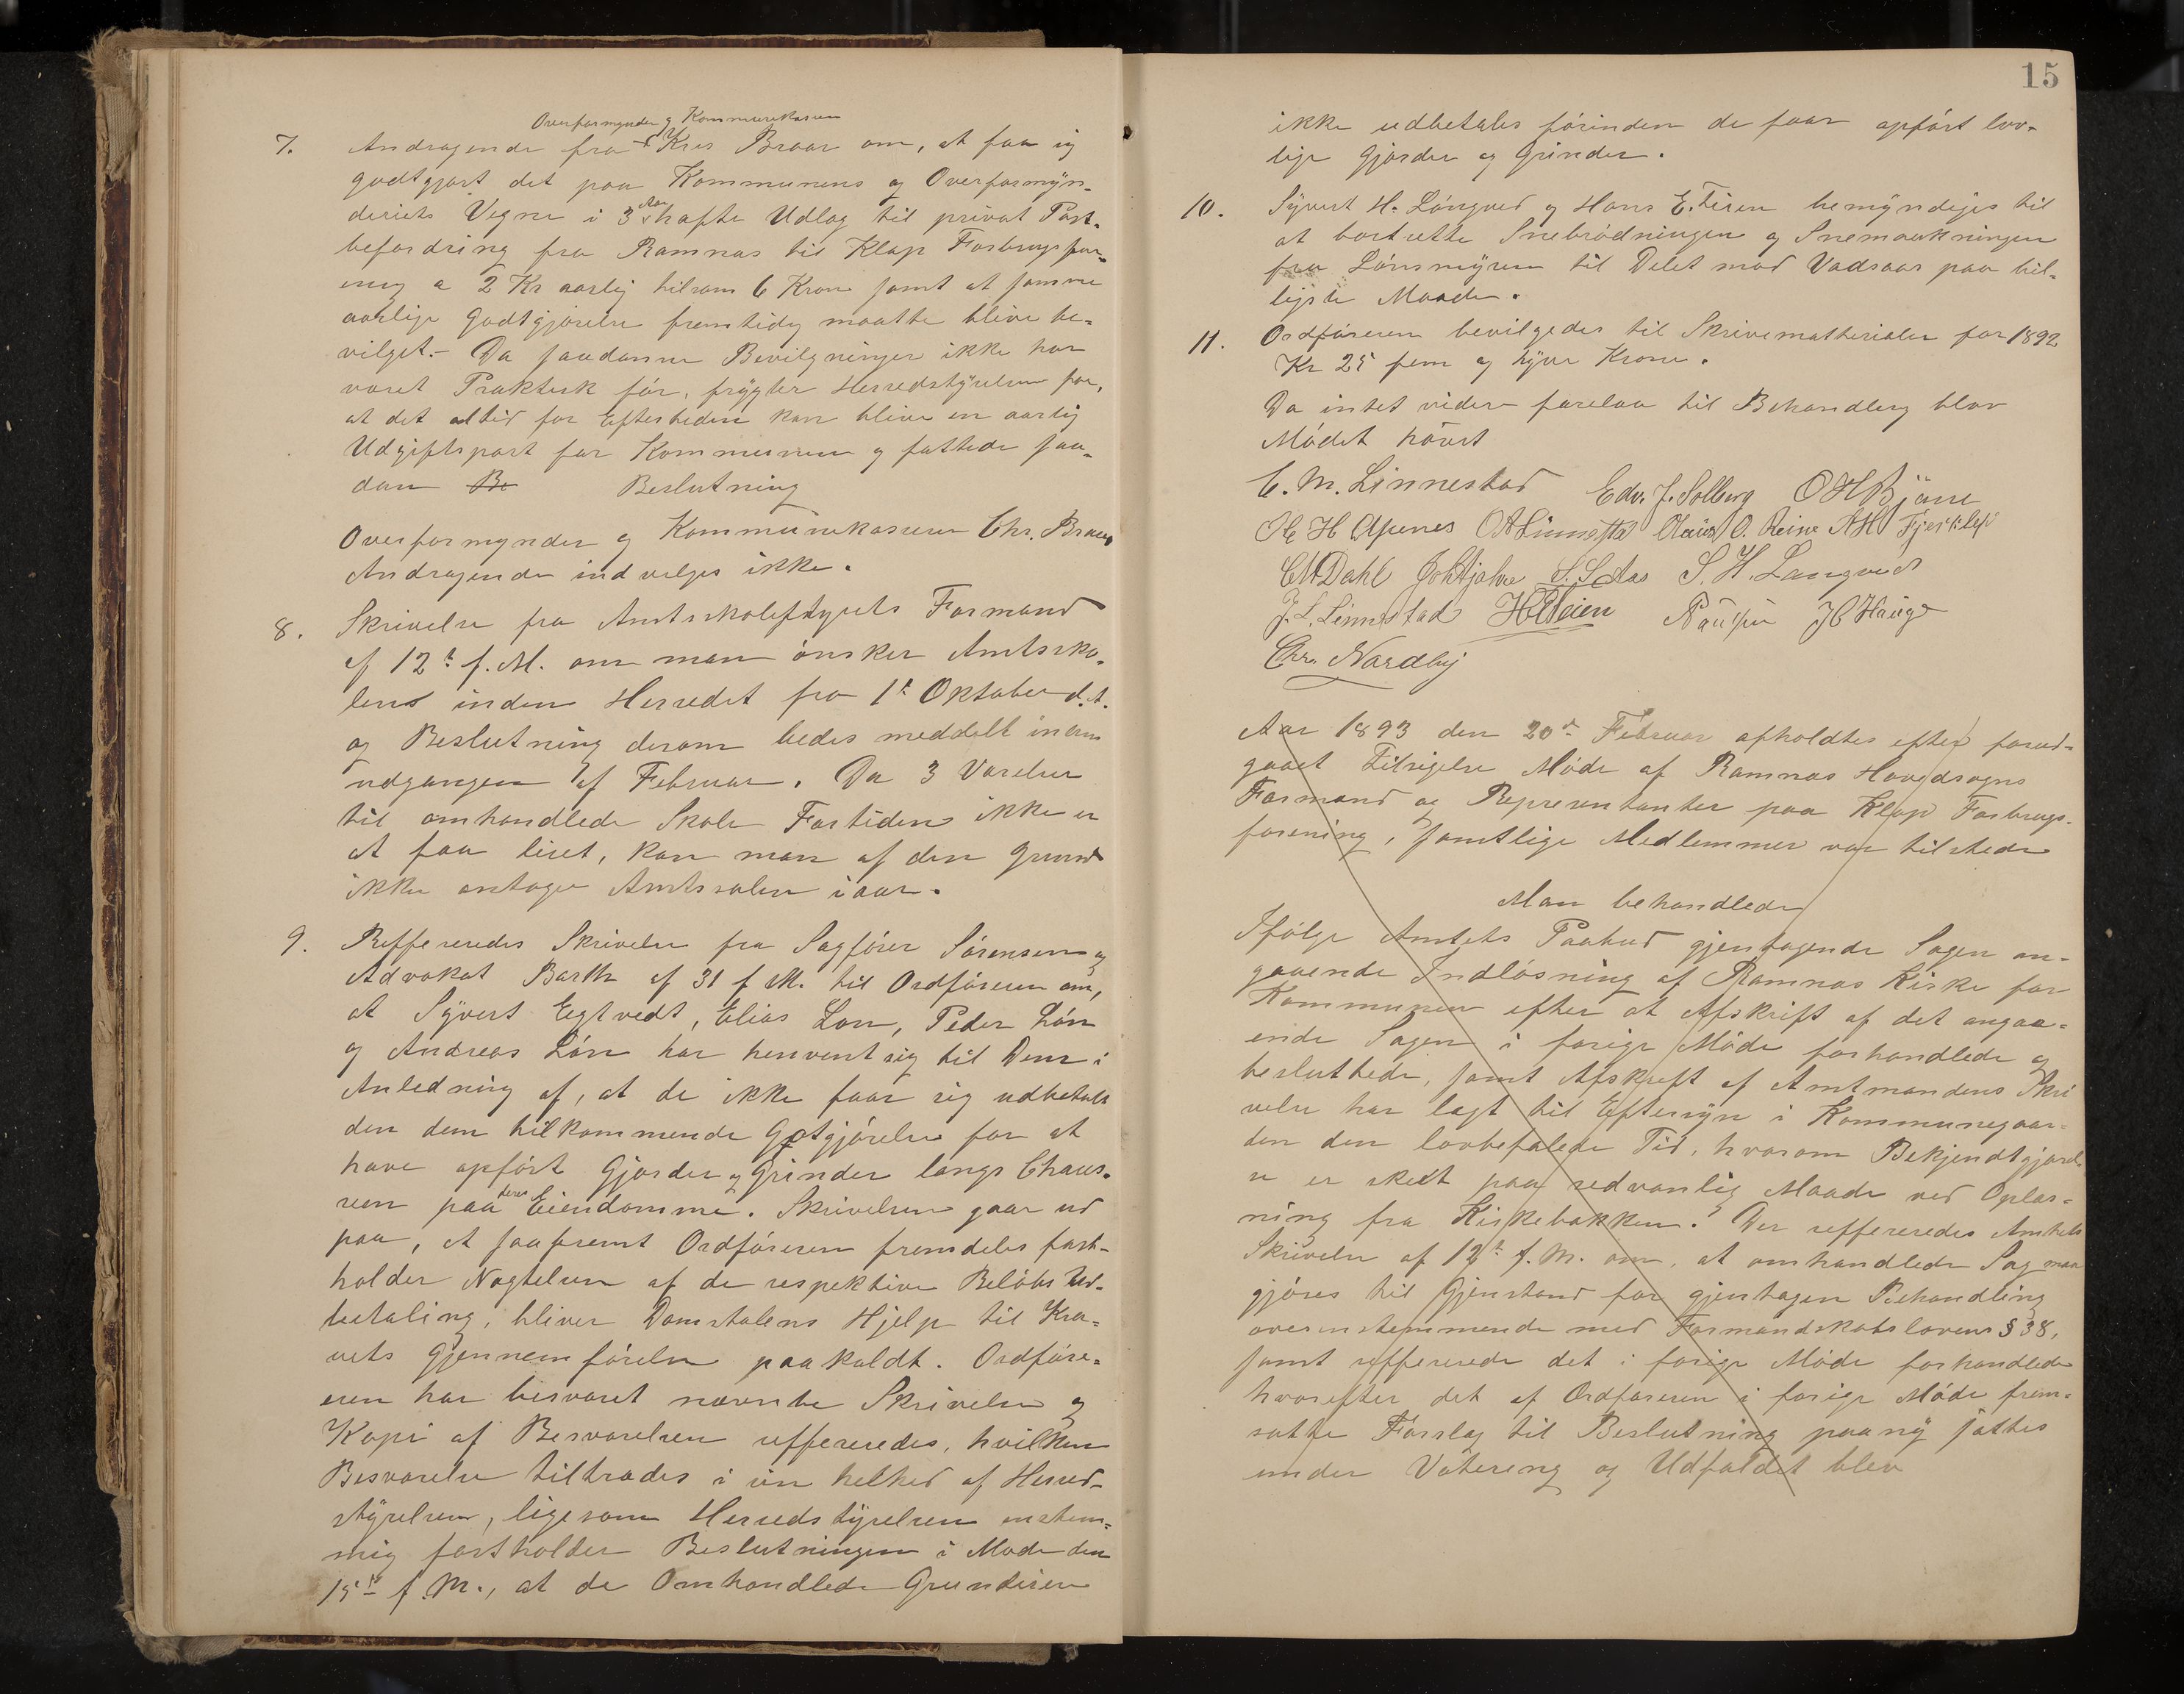 Overformynder og Kommunekasserer
7. Andragende fra Krs Braar om, at faa sig
godtgjort det paa Kommunens og Overformyn-
deriets Vegne i 3 Aar hafte Udlæg til privat Post-
befordring fra Ramnæs til Klop Forbrugsfor-
ening a 2 Kr aarlig tilsam 6 Kroner samt at samme
aarlige Godtgjørelse fremtidig maatte blive be-
vilget.- Da saadanne Bevilgninger ikke har
været Praktisk før, frygter Herredstyrelsen for,
at det altid for Eftertiden kan blive en aarlig
Udgiftspost for Kommunen og fattede saa-
dan Be Beslutning
Overformynder og Kommunekasserer Chr. Braaes
Andragende indvilges ikke.
8. Skrivelse fra Amtsskolestyrets Formand
af 12te f. M. om man ønsker Amtssko-
lens inden Herredet fra 1te Oktober d. A.
og Beslutning derom bedes meddelt inden
udgangen af Februar. Da 3 Værelser
til omhandlede Skole Fortiden ikke er
at faa leiet, kan man af den Grund
ikke antage Amtsskolen iaar.
9. Reffereredes Skrivelse fra Sagfører Sørensen og
Advokat Barth af 31 f M. til Ordføreren om,
at Syvert Egtvedt, Elias Løn, Peder Løn
og Andreas Løn har henvent sig til Dem i
Anledning af, at de ikke faar sig udbetalt
den dem tilkommende Gotgjørelse for at
have opført Gjærder og Grinder langs Chaus-
seen paa deres Eiendomme. Skrivelsen gaar ud
paa, at saafremt Ordføreren fremdeles fast-
holder Nægtelsen af de respektive Beløbs Ud-
betaling, bliver Domstolens Hjelp til Kra-
vets Gjennemførelse paakaldt. Ordføre-
ren har besvaret nævnte Skrivelse og
Kopi af Besvarelsen reffereredes, hvilken
Besvarelse tiltrædes i sin helhed af Herred-
styrelsen, ligesom Herredstyrelsen enstem-
mig fastholder Beslutningen i Møde den
15de f. M., at de Omhandlede Grundeiere
15
ikke udbetales førinden de faar opført lov-
lige Gjærder og Grinder.
10. Syvert H. Langved og Hans E. Teien bemyndiges til
at bortsette Snebrødningen og Snemaakningen
fra Lønsmyren til Delet mod Vadsaas paa bil-
ligste Maade.
11. Ordføreren bevilgedes til Skrivematherialer for 1892
Kr 25 fem og tyve Kroner.
Da intet videre forelaa til Behandling blev
Mødet hævet
C. M. Linnestad Edv. J. Solberg O H Bjane
H Apenes O A Linnestad O. Reine A H
C M Dahl S. S. Aas S. H. Langved
J. L. Linnestad H E Teien H Hauge
Chr. Nordby
Aar 1893 den 20de Februar afholdtes efter forud-
gaaet Tilsigelse Møde af Ramnæs Hovedsogns
Formænd og Repræsentanter paa Klop Forbrugs-
forening, samtlige Medlemmer var tilstede
Man behandlede
Ifølge Amtets Paabud gjentagende Sagen an-
gaaende Indløsning af Ramnæs Kirke for
Kommunen efter at Afskrift af det angaa-
ende Sagen i forige Møde forhandlede og
besluttede, samt Afskrift af Amtmandens Skri
velse har lagt til Eftersyn i Kommunegaar-
den den lovbefalede Tid, hvorom Bekjendtgjørel-
se er skeet paa sedvanlig Maade ved Oplæs-
ning fra Kirkebakken. Der reffereredes Amtets
Skrivelse af 12te f. M. om, at omhandlede Sag maa
gjøres til Gjenstand for gjentagen Behandling
overenstemmende med Formandskabslovens § 38,
samt reffererede det i forige Møde forhandlede
hvorefter det af Ordføreren i forige Møde frem-
satte Forslag til Beslutning paany sattes
under Votering og Udfaldet blev